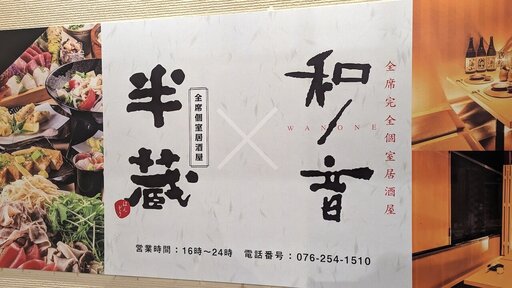 全席完全個室居酒屋
和ノ音
WANONE
×
全席個室居酒屋
半蔵
はんぞう
営業時間：16時〜24時 電話番号：076-254-1510